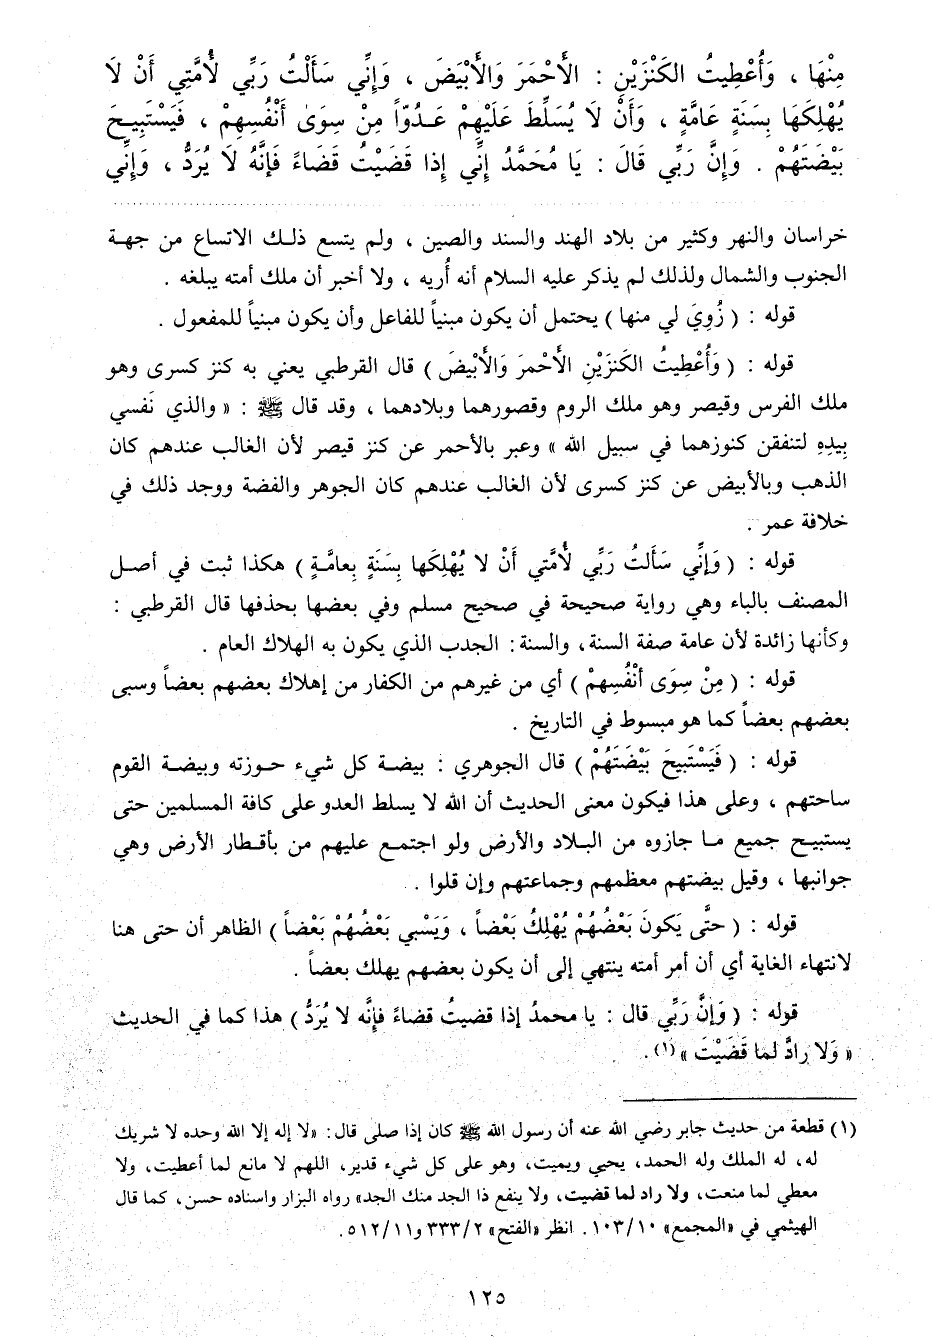 مِنْهَا ، وَأُعْطِيتُ الكَنْزَيْنِ : الأَحْمَرَ وَالأَبْيَضَ ، وَإِنِّي سَأَلْتُ رَبِّي لأُمَّتِي أَنْ لَا
يُهْلِكَهَا بِسَنَةٍ عَامَّةٍ ، وَأَنْ لَا يُسَلِّطَ عَلَيْهِمْ عَدُوّاً مِنْ سِوَىٰ أَنْفُسِهِمْ ، فَيَسْتَبِيحَ
بَيْضَتَهُمْ . وَإِنَّ رَبِّي قَالَ : يَا مُحَمَّدُ إِنِّي إِذا قَضَيْتُ قَضَاءً فَإِنَّهُ لَا يُرَدُّ ، وَإِنِّي
خراسان والنهر وكثير من بلاد الهند والسند والصين ، ولم يتسع ذلك الاتساع من جهة
الجنوب والشمال ولذلك لم يذكر عليه السلام أنه أُريه ، ولا أخبر أن ملك أمته يبلغه .
قوله : ( زُوِيَ لي منها ) يحتمل أن يكون مبنياً للفاعل وأن يكون مبنياً للمفعول .
قوله : ( وَأُعْطِيتُ الكَنزَيْنِ الأَحْمَرَ وَالأَبْيَضَ ) قال القرطبي يعني به كنز كسرى وهو
ملك الفرس وقيصر وهو ملك الروم وقصورهما وبلادهما ، وقد قال ﷺ : « والذي نَفسي
بِيدِهِ لتنفقن كنوزهما في سبيل الله » وعبر بالأحمر عن كنز قيصر لأن الغالب عندهم كان
الذهب وبالأبيض عن كنز كسرى لأن الغالب عندهم كان الجوهر والفضة ووجد ذلك في
خلافة عمر .
قوله : ( وَإنِّي سَألتُ رَبِّي لأُمَّتي أَنْ لا يُهْلِكَها بِسَنَةٍ بِعامَّةٍ ) هكذا ثبت في أصل
المصنف بالباء وهي رواية صحيحة في صحيح مسلم وفي بعضها بحذفها قال القرطبي :
وكأنها زائدة لأن عامة صفة السنة، والسنة: الجدب الذي يكون به الهلاك العام .
قوله : ( مِنْ سِوَى أنْفُسِهِمْ ) أي من غيرهم من الكفار من إهلاك بعضهم بعضاً وسبى
بعضهم بعضاً كما هو مبسوط في التاريخ .
قوله : ( فَيَسْتَبِيحَ بَيْضَتَهُمْ ) قال الجوهري : بيضة كل شيء حوزته وبيضة القوم
ساحتهم ، وعلى هذا فيكون معنى الحديث أن الله لا يسلط العدو على كافة المسلمين حتى
يستبيح جميع ما جازوه من البلاد والأرض ولو اجتمع عليهم من بأقطار الأرض وهي
جوانبها ، وقيل بيضتهم معظمهم وجماعتهم وإن قلوا .
قوله : ( حتَّى يَكونَ بَعْضُهُمْ يُهْلِكُ بَعْضاً ، وَيَسْبي بَعْضُهُمْ بَعْضاً ) الظاهر أن حتى هنا
لانتهاء الغاية أي أن أمر أمته ينتهي إلى أن يكون بعضهم يهلك بعضاً .
قوله : ( وَإنَّ رَبِّي قال : يا محمدُ إذا قضيتُ قضاءً فإنَّه لا يُرَدُّ ) هذا كما في الحديث
« وَلا رادَّ لما قَضَيْتَ »(١).
(١) قطعة من حديث جابر رضي الله عنه أن رسول الله ﷺ كان إذا صلى قال: «لا إله إلا الله وحده لا شريك
له، له الملك وله الحمد، يحيي ويميت، وهو على كل شيء قدير، اللهم لا مانع لما أعطيت، ولا
معطي لما منعت، ولا راد لما قضيت، ولا ينفع ذا الجد منك الجد» رواه البزار واسناده حسن، كما قال
الهيثمي في «المجمع» ١٠٣/١٠. انظر «الفتح» ٣٣٣/٢ و٥١٢/١١.
١٢٥